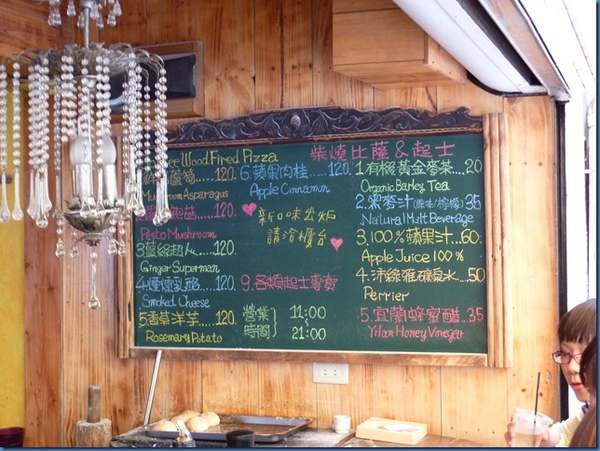 ee Wood Fired Pizza
柴燒比薩&起士
蘆筍.....120.
Mushroom Asparagus
菇.....120.
Pesto Mushroom
3.薑超人.....120.
Ginger Superman
4.煙燻乳酪.....120
Smoked Cheese
5.香草洋芋.....120.
Rosemary Potato
6.蘋果肉桂.....120.
Apple Cinnamon
新口味出爐
請洽櫃台
9.各類起士
營業時間
11:00
21:00
1.有機黃金麥茶...20
Organic Barley Tea
2.黑麥汁(原味/檸檬)35
Natural Malt Beverage
3.100%蘋果汁...60.
Apple Juice 100%
4.沛綠雅礦泉水...50
Perrier
5.宜蘭蜂蜜醋...35
Yilan Honey Vinegar